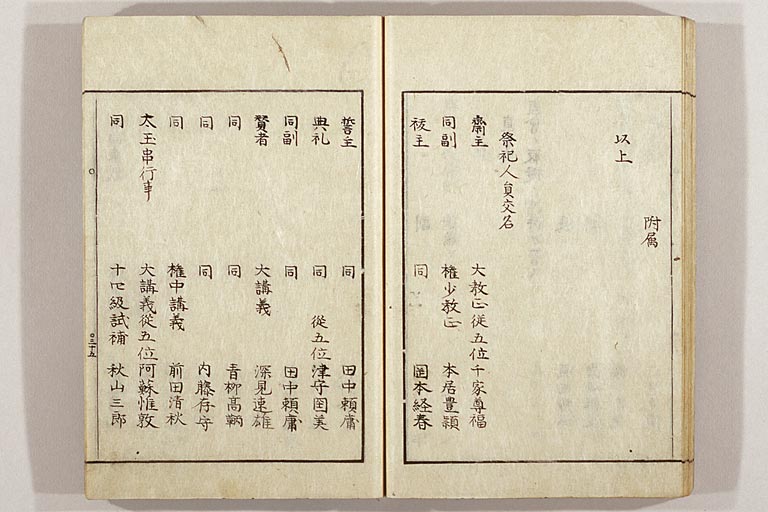 附属
以上
祭祀人員交名
齋主 大教正従五位千家尊福
同副 権少教正 本居豊頴
祓主 同 岡本経春
誓主 同 田中頼庸
典礼 同 従五位津守国美
同副 同 田中頼庸
賛者 大講義 深見速雄
同 同 青柳高鞆
同 同 内藤存守
同 権中講義 前田清秋
太玉串行事 大講義従五位阿蘇惟敦
同 十四級試補 秋山三郎